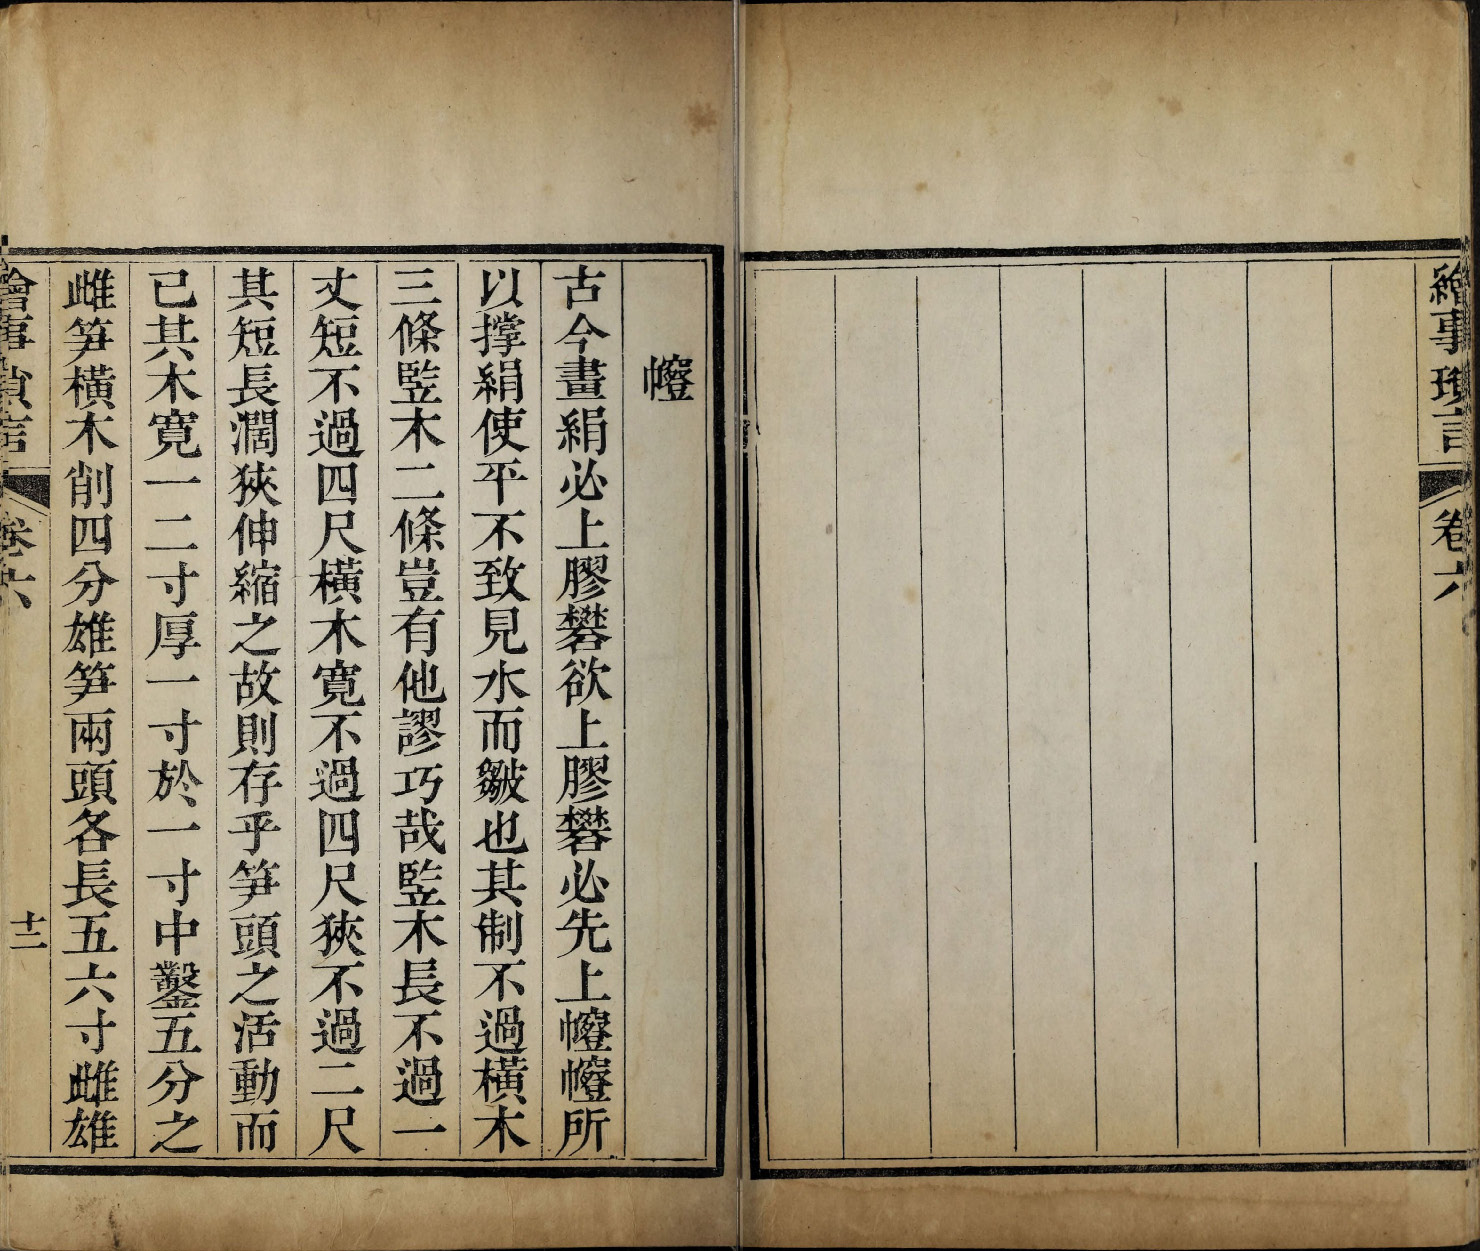 繪事瑣言
卷六
㡧
古今畫絹必上膠礬欲上膠礬必先上㡧㡧所
以撐絹使平不致見水而皺也其制不過橫木
三條竪木二條豈有他謬巧哉竪木長不過一
丈短不過四尺橫木寬不過四尺狹不過二尺
其短長濶狹伸縮之故則存乎笋頭之活動而
已其木寛一二寸厚一寸於一寸中鑿五分之
雌笋橫木削四分雄笋兩頭各長五六寸雌雄
繪事瑣言
卷六
十二